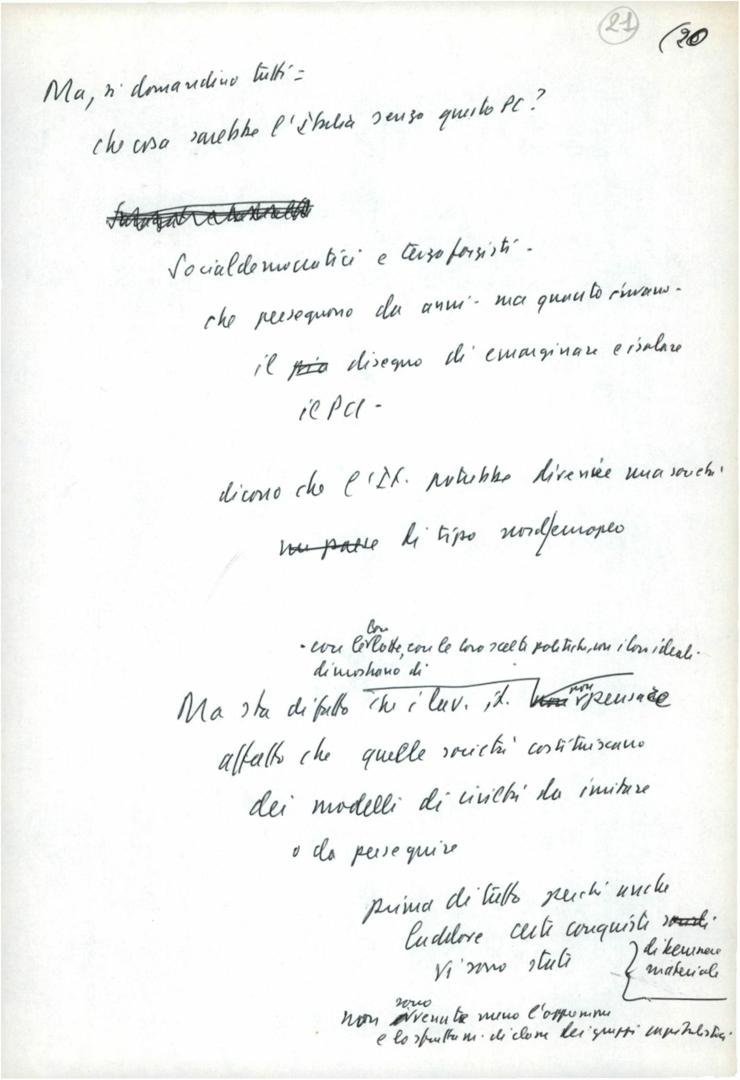 21 (20
Ma, si domandino tutti =
che cosa sarebbe l'Italia senza questo PC?
Socialdemocratici e terzaforzisti -
che perseguono da anni - ma quanto invano -
il pia disegno di emarginare e isolare
il PCI -
dicono che l'It. potrebbe divenire una società
un paese di tipo nord/europeo
con
- con le lotte, con le loro scelte politiche, con i loro ideali -
dimostrano di
Ma sta di fatto che i lav. it. non non pensare
affatto che quelle società costituiscano
dei modelli di civiltà da imitare
o da perseguire
prima di tutto perché anche
laddove certe conquiste
vi sono state
di benessere
materiale
sono
non venute meno l'oppressione
e lo sfruttam. di classe dei gruppi capitalistici